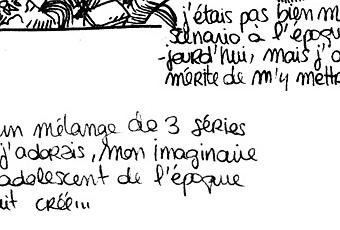 j'étais pas bien m
scénario à l'époqu
-jourd'hui, mais j'a
mérite de m'y mettr
un mélange de 3 séries
j'adorais, mon imaginaire
adolescent de l'époque
ait créé...